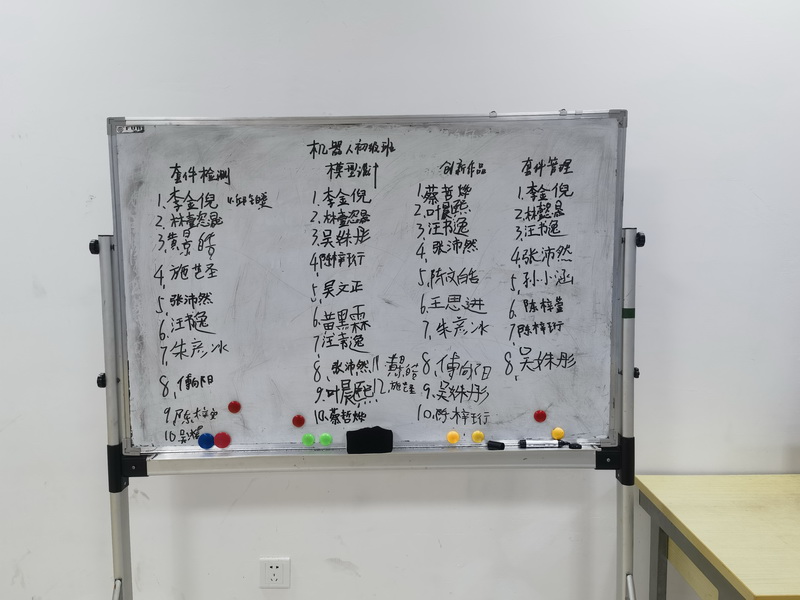 机器人初级班
套件检测
1.李金倪
2.林懿忍晟
3.黄
4.施艺圣
5.张沛然
6.汪书逸
7.朱彦冰
8.傅向阳
9.陈
10.吴
模型设计
1.李金倪
2.林懿忍晟
3.吴姝彤
4.陈梓珩
5.吴文正
6.黄黑霖
7.汪书逸
8.张沛然
9.叶晨熙
10.蔡哲烨
11.黄
12.施艺圣
创新作品
1.蔡哲烨
2.叶晨熙
3.汪书逸
4.张沛然
5.陈文皓
6.王思进
7.朱彦冰
8.傅向阳
9.吴姝彤
10.陈梓珩
套件管理
1.李金倪
2.林懿忍晟
3.汪书逸
4.张沛然
5.孙小涵
6.陈梓莹
7.陈梓珩
8.吴姝彤